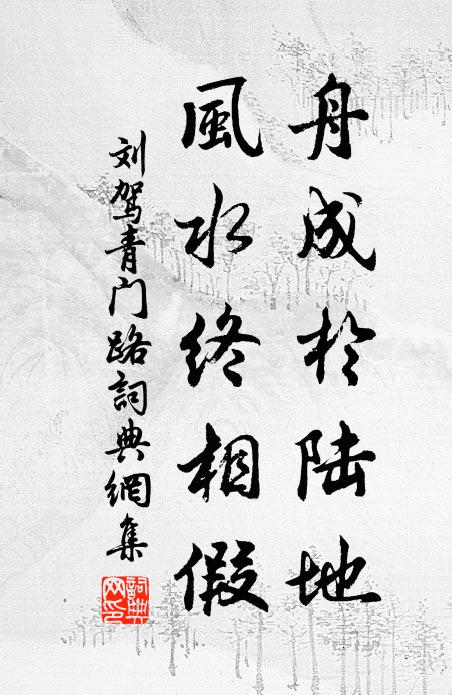 舟成於陆地
風水终相假
刘驾青门路詞典網集
詞典